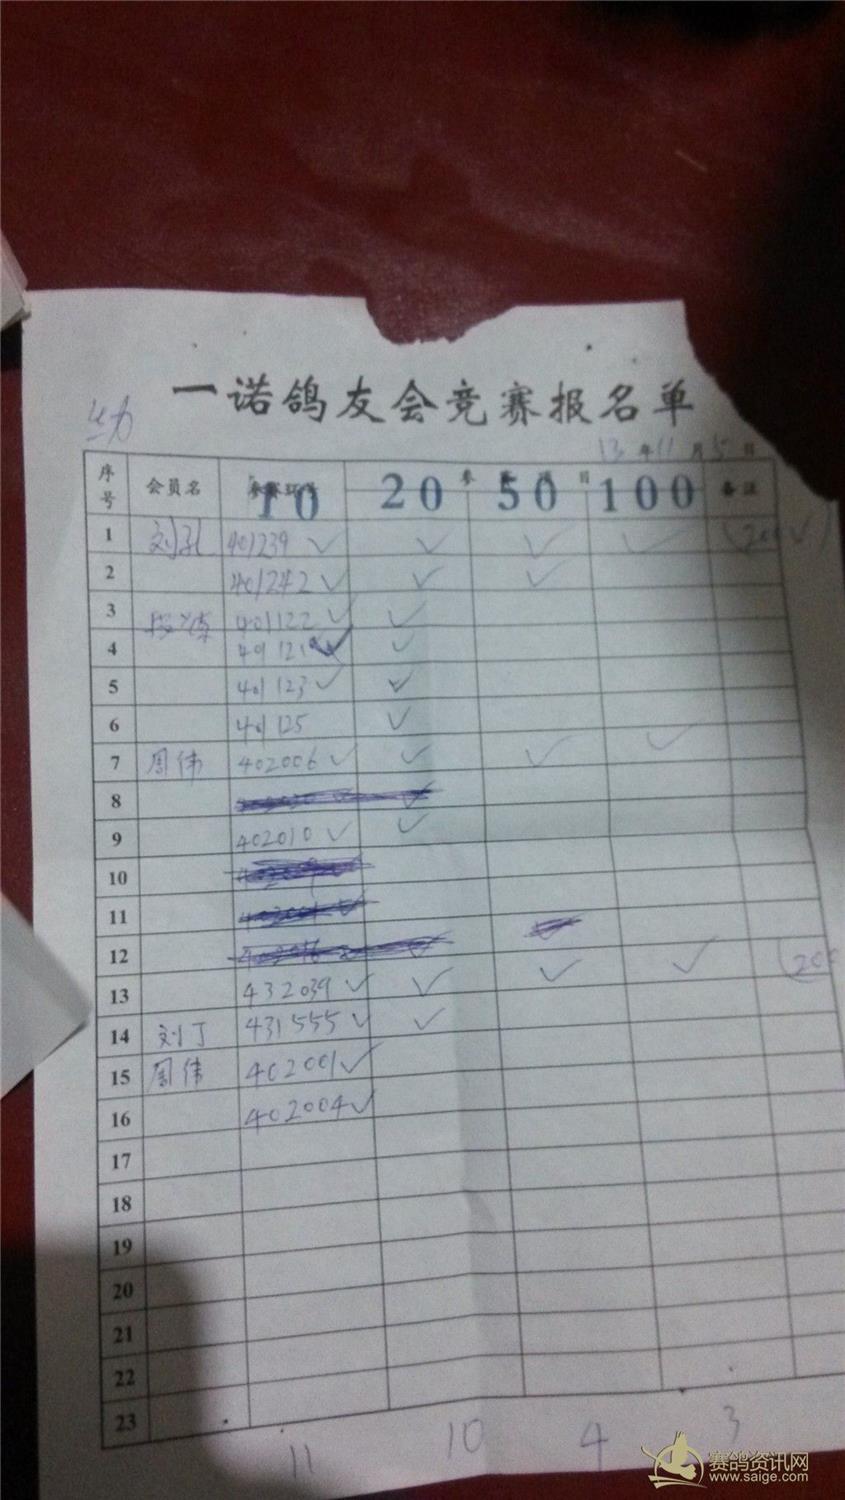 一诺鸽友会竞赛报名单
13 年 11 月 5 日
序号 会员名 10 20 50 100 备注
1 401239 ✓ ✓ ✓ ✓
2 401242 ✓ ✓ ✓
3 401122 ✓ ✓
4 401121 ✓ ✓
5 401123 ✓ ✓
6 401125 ✓
7 周伟 402006 ✓ ✓ ✓ ✓
8
9 402010 ✓ ✓
10
11
12
13 432039 ✓ ✓ ✓ ✓
14 刘丁 431555 ✓ ✓
15 周伟 402001 ✓
16 402004 ✓
17
18
19
20
21
22
23
11 10 4 3
赛鸽资讯网
www.saige.com